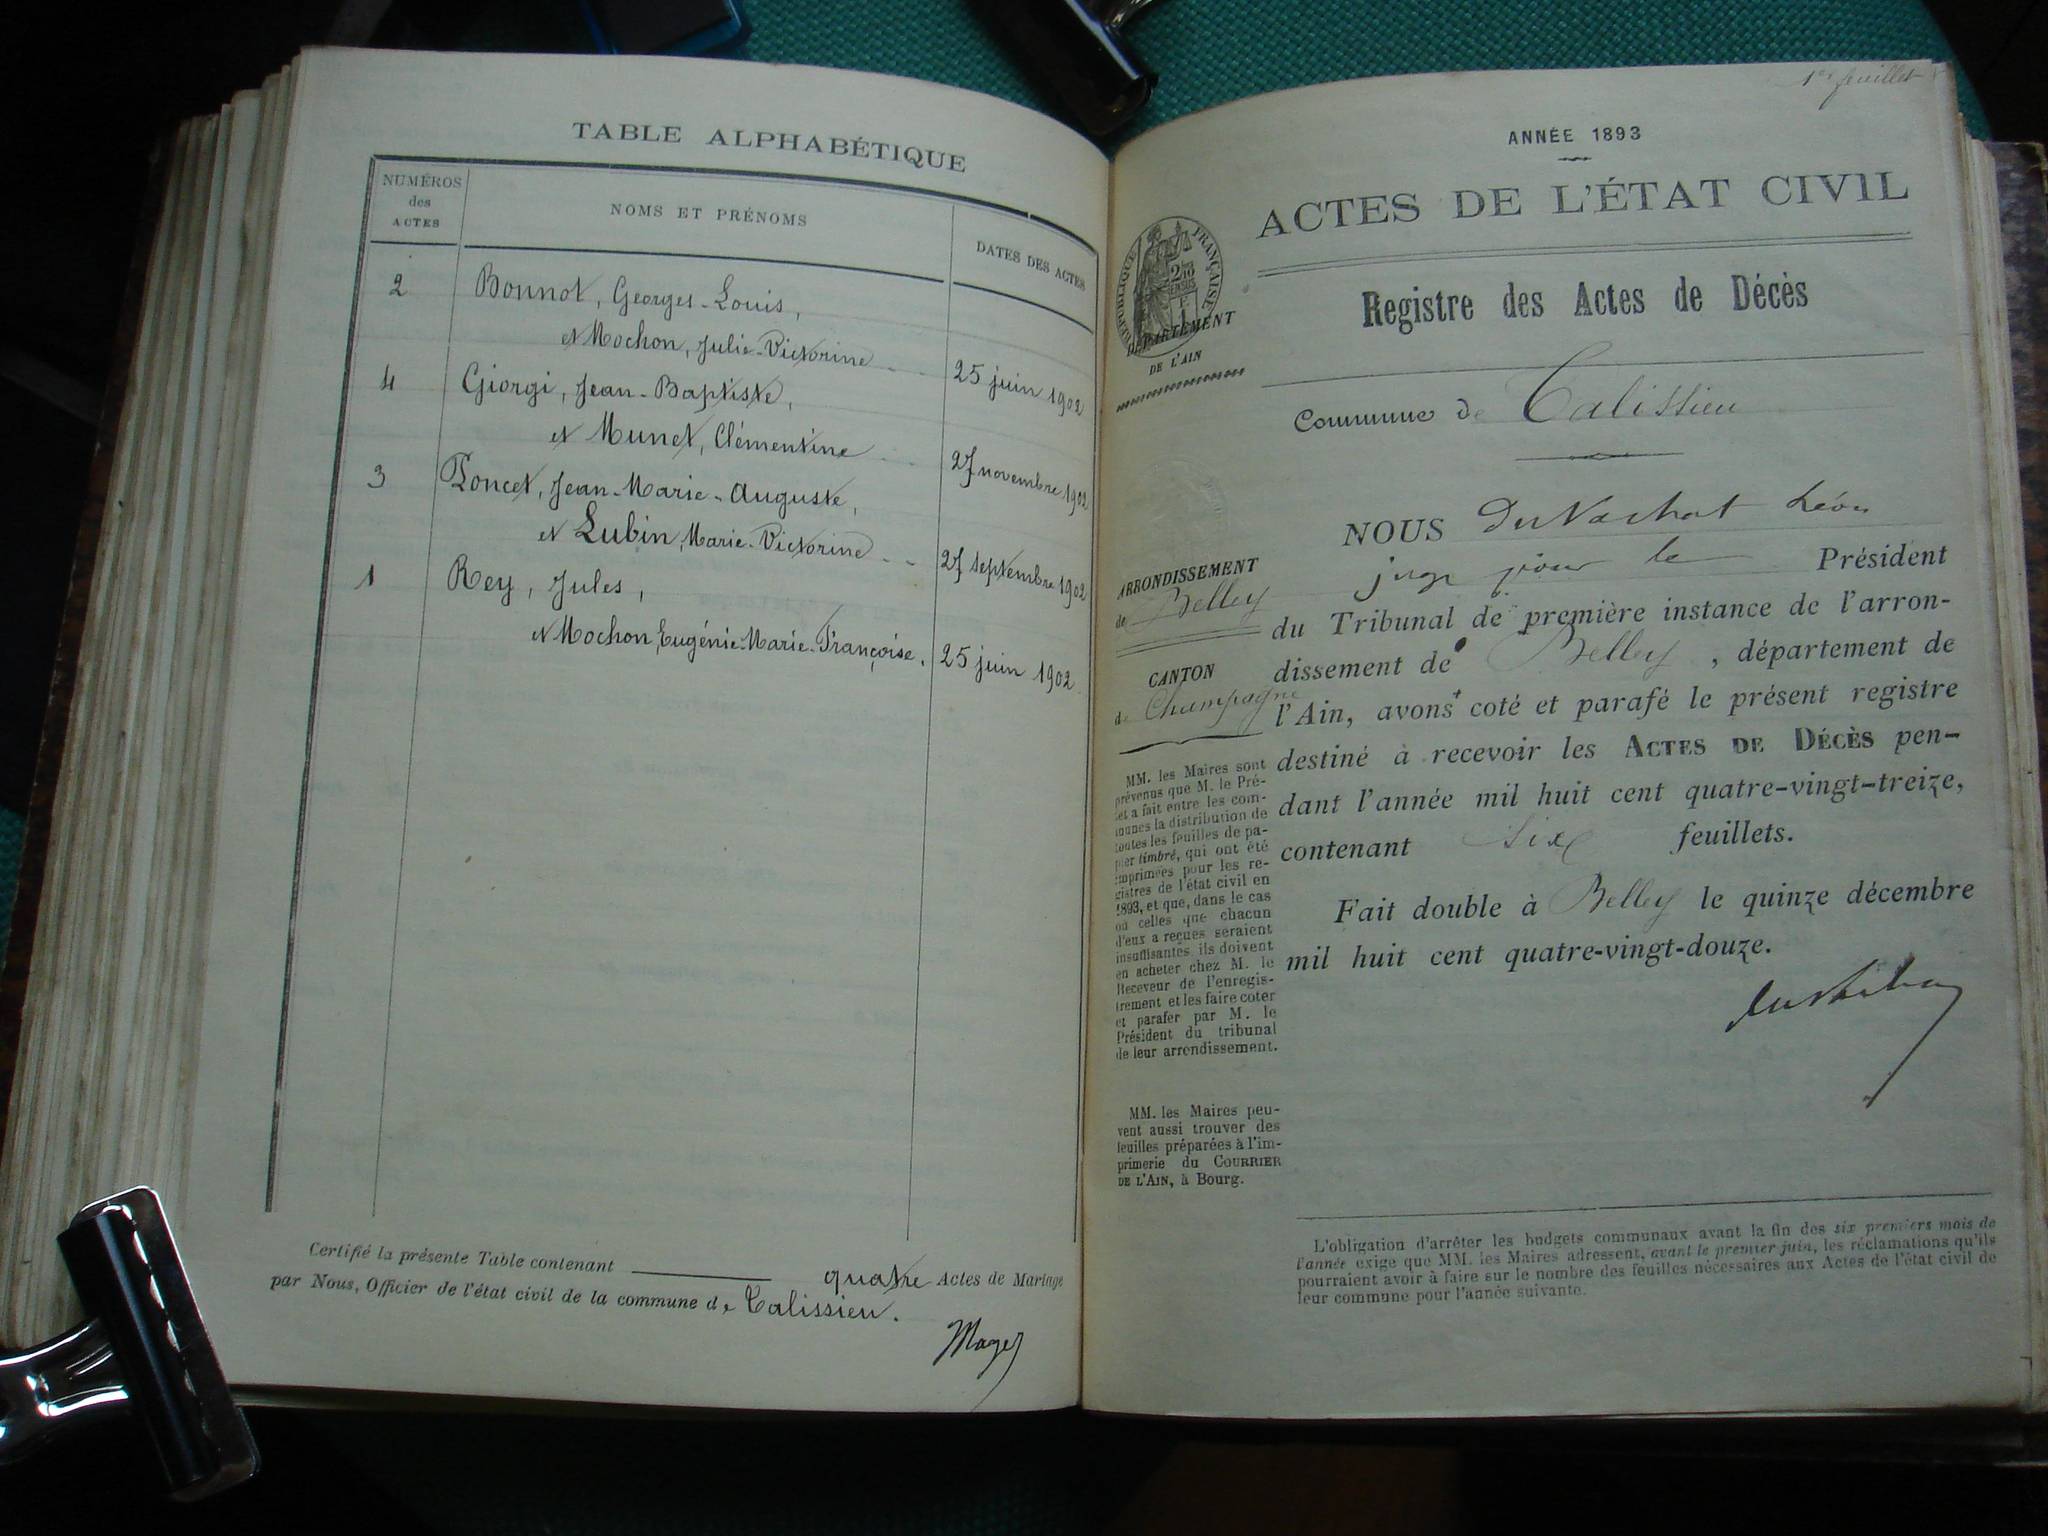 TABLE ALPHABÉTIQUE
NUMÉROS
des
ACTES
NOMS ET PRÉNOMS
DATES DES ACTES
2 Bonnot, Georges-Louis,
et Mochon, Julie-Victorine 25 juin 1902
4 Giorgi, Jean-Baptiste,
et Munet, Clémentine 27 novembre 1902
3 Poncet, Jean-Marie-Auguste,
et Lubin, Marie-Victorine 27 septembre 1902
1 Rey, Jules,
et Mochon, Eugénie-Marie-Françoise, 25 juin 1902
Certifié la présente Table contenant quatre Actes de Mariage
par Nous, Officier de l'état civil de la commune de Talissieu.
1er feuillet
ANNÉE 1893
ACTES DE L'ÉTAT CIVIL
RÉPUBLIQUE FRANÇAISE
DÉPARTEMENT
DE L'AIN
Registre des Actes de Décès
Commune de Talissieu
ARRONDISSEMENT
de Belley
CANTON
de Champagne
MM. les Maires sont
prévenus que M. le Pré-
fet a fait entre les com-
munes la distribution de
toutes les feuilles de pa-
pier timbré, qui ont été
imprimées pour les re-
gistres de l'état civil en
1893, et que, dans le cas
où celles que chacun
d'eux a reçues seraient
insuffisantes ils doivent
en acheter chez M. le
Receveur de l'enregis-
trement et les faire coter
et parafer par M. le
Président du tribunal
de leur arrondissement.
MM. les Maires peu-
vent aussi trouver des
feuilles préparées à l'im-
primerie du COURRIER
DE L'AIN, à Bourg.
NOUS Léon
juge pour le Président
du Tribunal de première instance de l'arron-
dissement de Belley, département de
l'Ain, avons coté et parafé le présent registre
destiné à recevoir les ACTES DE DÉCÈS pen-
dant l'année mil huit cent quatre-vingt-treize,
contenant six feuillets.
Fait double à Belley le quinze décembre
mil huit cent quatre-vingt-douze.
L'obligation d'arrêter les budgets communaux avant la fin des six premiers mois de
l'année exige que MM. les Maires adressent, avant le premier juin, les réclamations qu'ils
pourraient avoir à faire sur le nombre des feuilles nécessaires aux Actes de l'état civil de
leur commune pour l'année suivante.